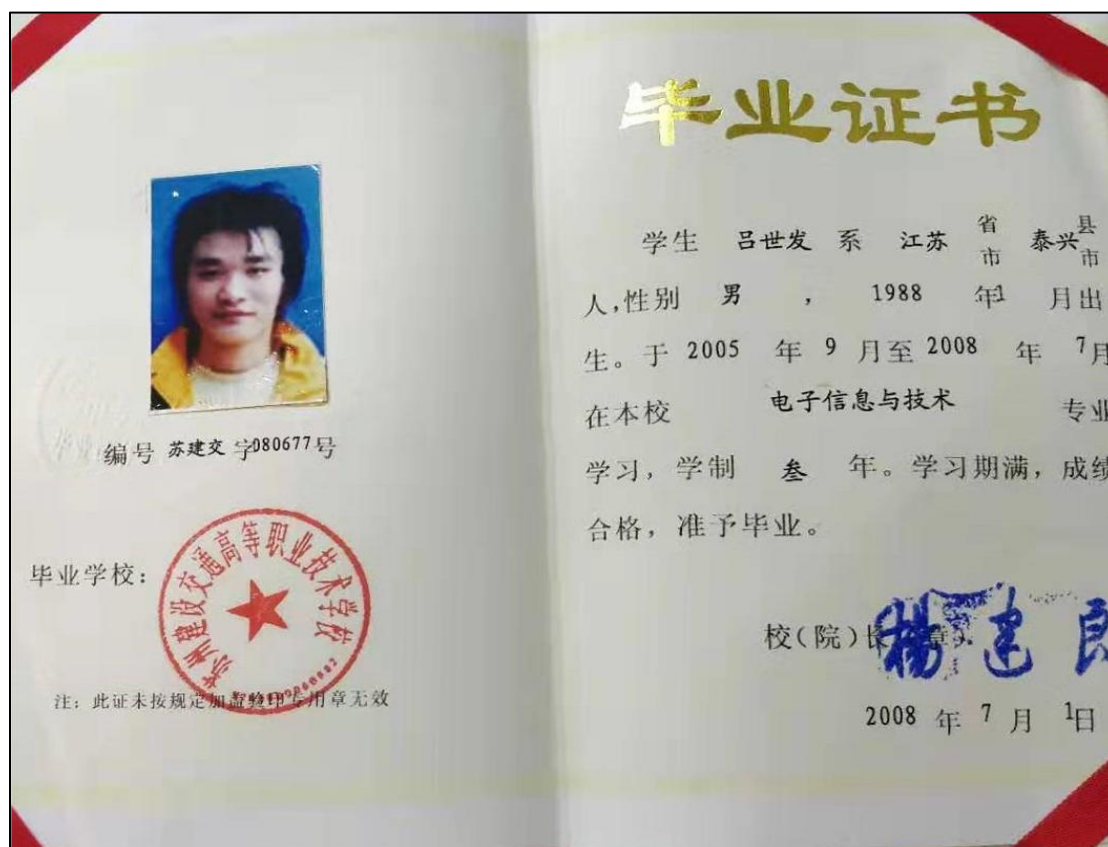 编号 苏建交 字080677号
毕业学校：
苏州建设交通高等职业技术学校
注：此证未按规定加盖验印专用章无效
毕业证书
学生 吕世发 系 江苏 省市 泰兴 县市
人,性别 男 , 1988 年1 月出
生。于 2005 年 9 月至 2008 年 7月
在本校 电子信息与技术 专业
学习，学制 叁 年。学习期满，成绩
合格，准予毕业。
校(院)长 章
杨建良
2008 年 7 月 1日